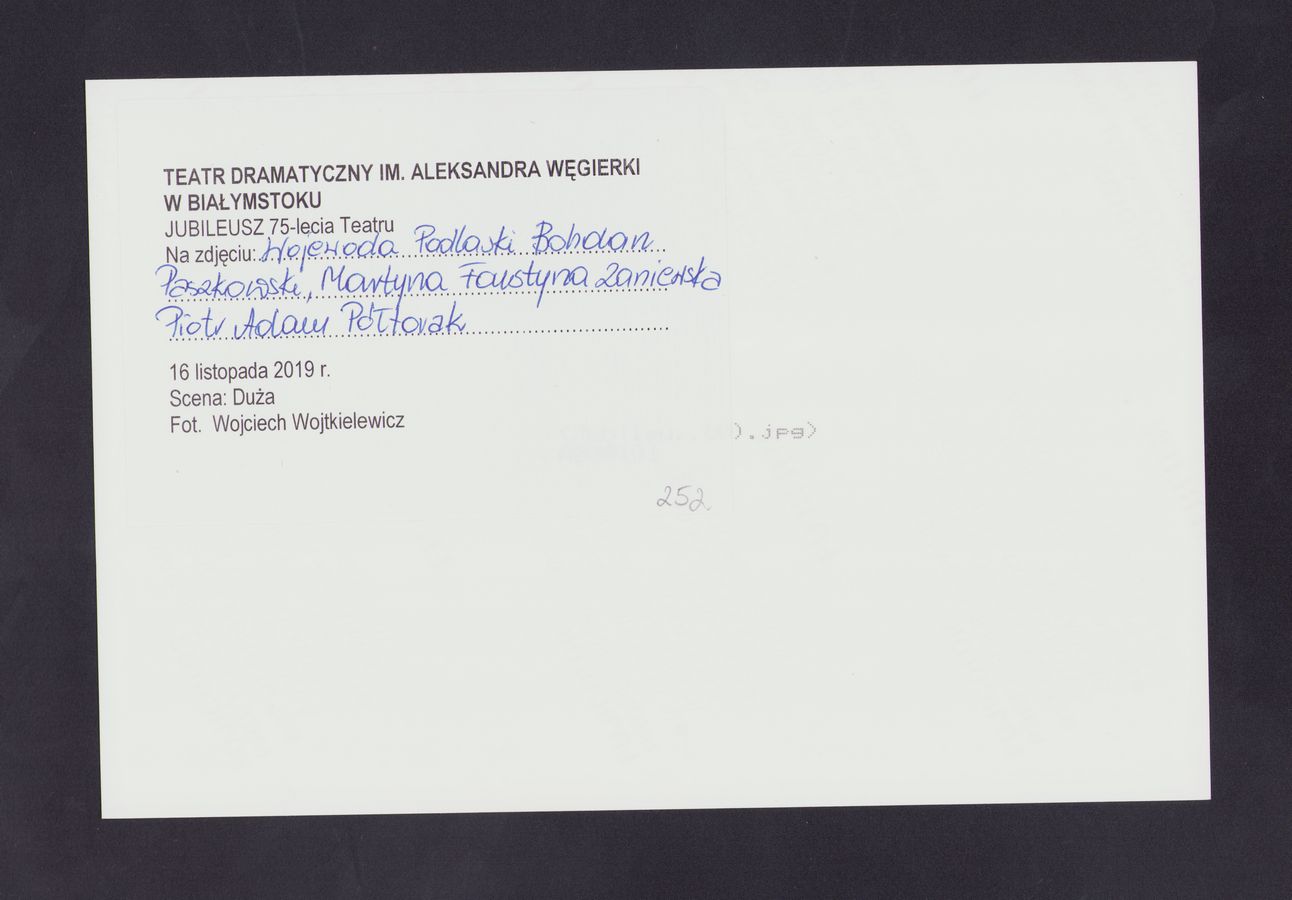 TEATR DRAMATYCZNY IM. ALEKSANDRA WĘGIERKI
W BIAŁYMSTOKU
JUBILEUSZ 75-lecia Teatru
Na zdjęciu: Wojewoda Podlaski Bohdan
Paszkowski, Martyna Faustyna Zaniewska
Piotr Adam Półtorak
16 listopada 2019 r.
Scena: Duża
Fot. Wojciech Wojtkielewicz
).jpg)
252